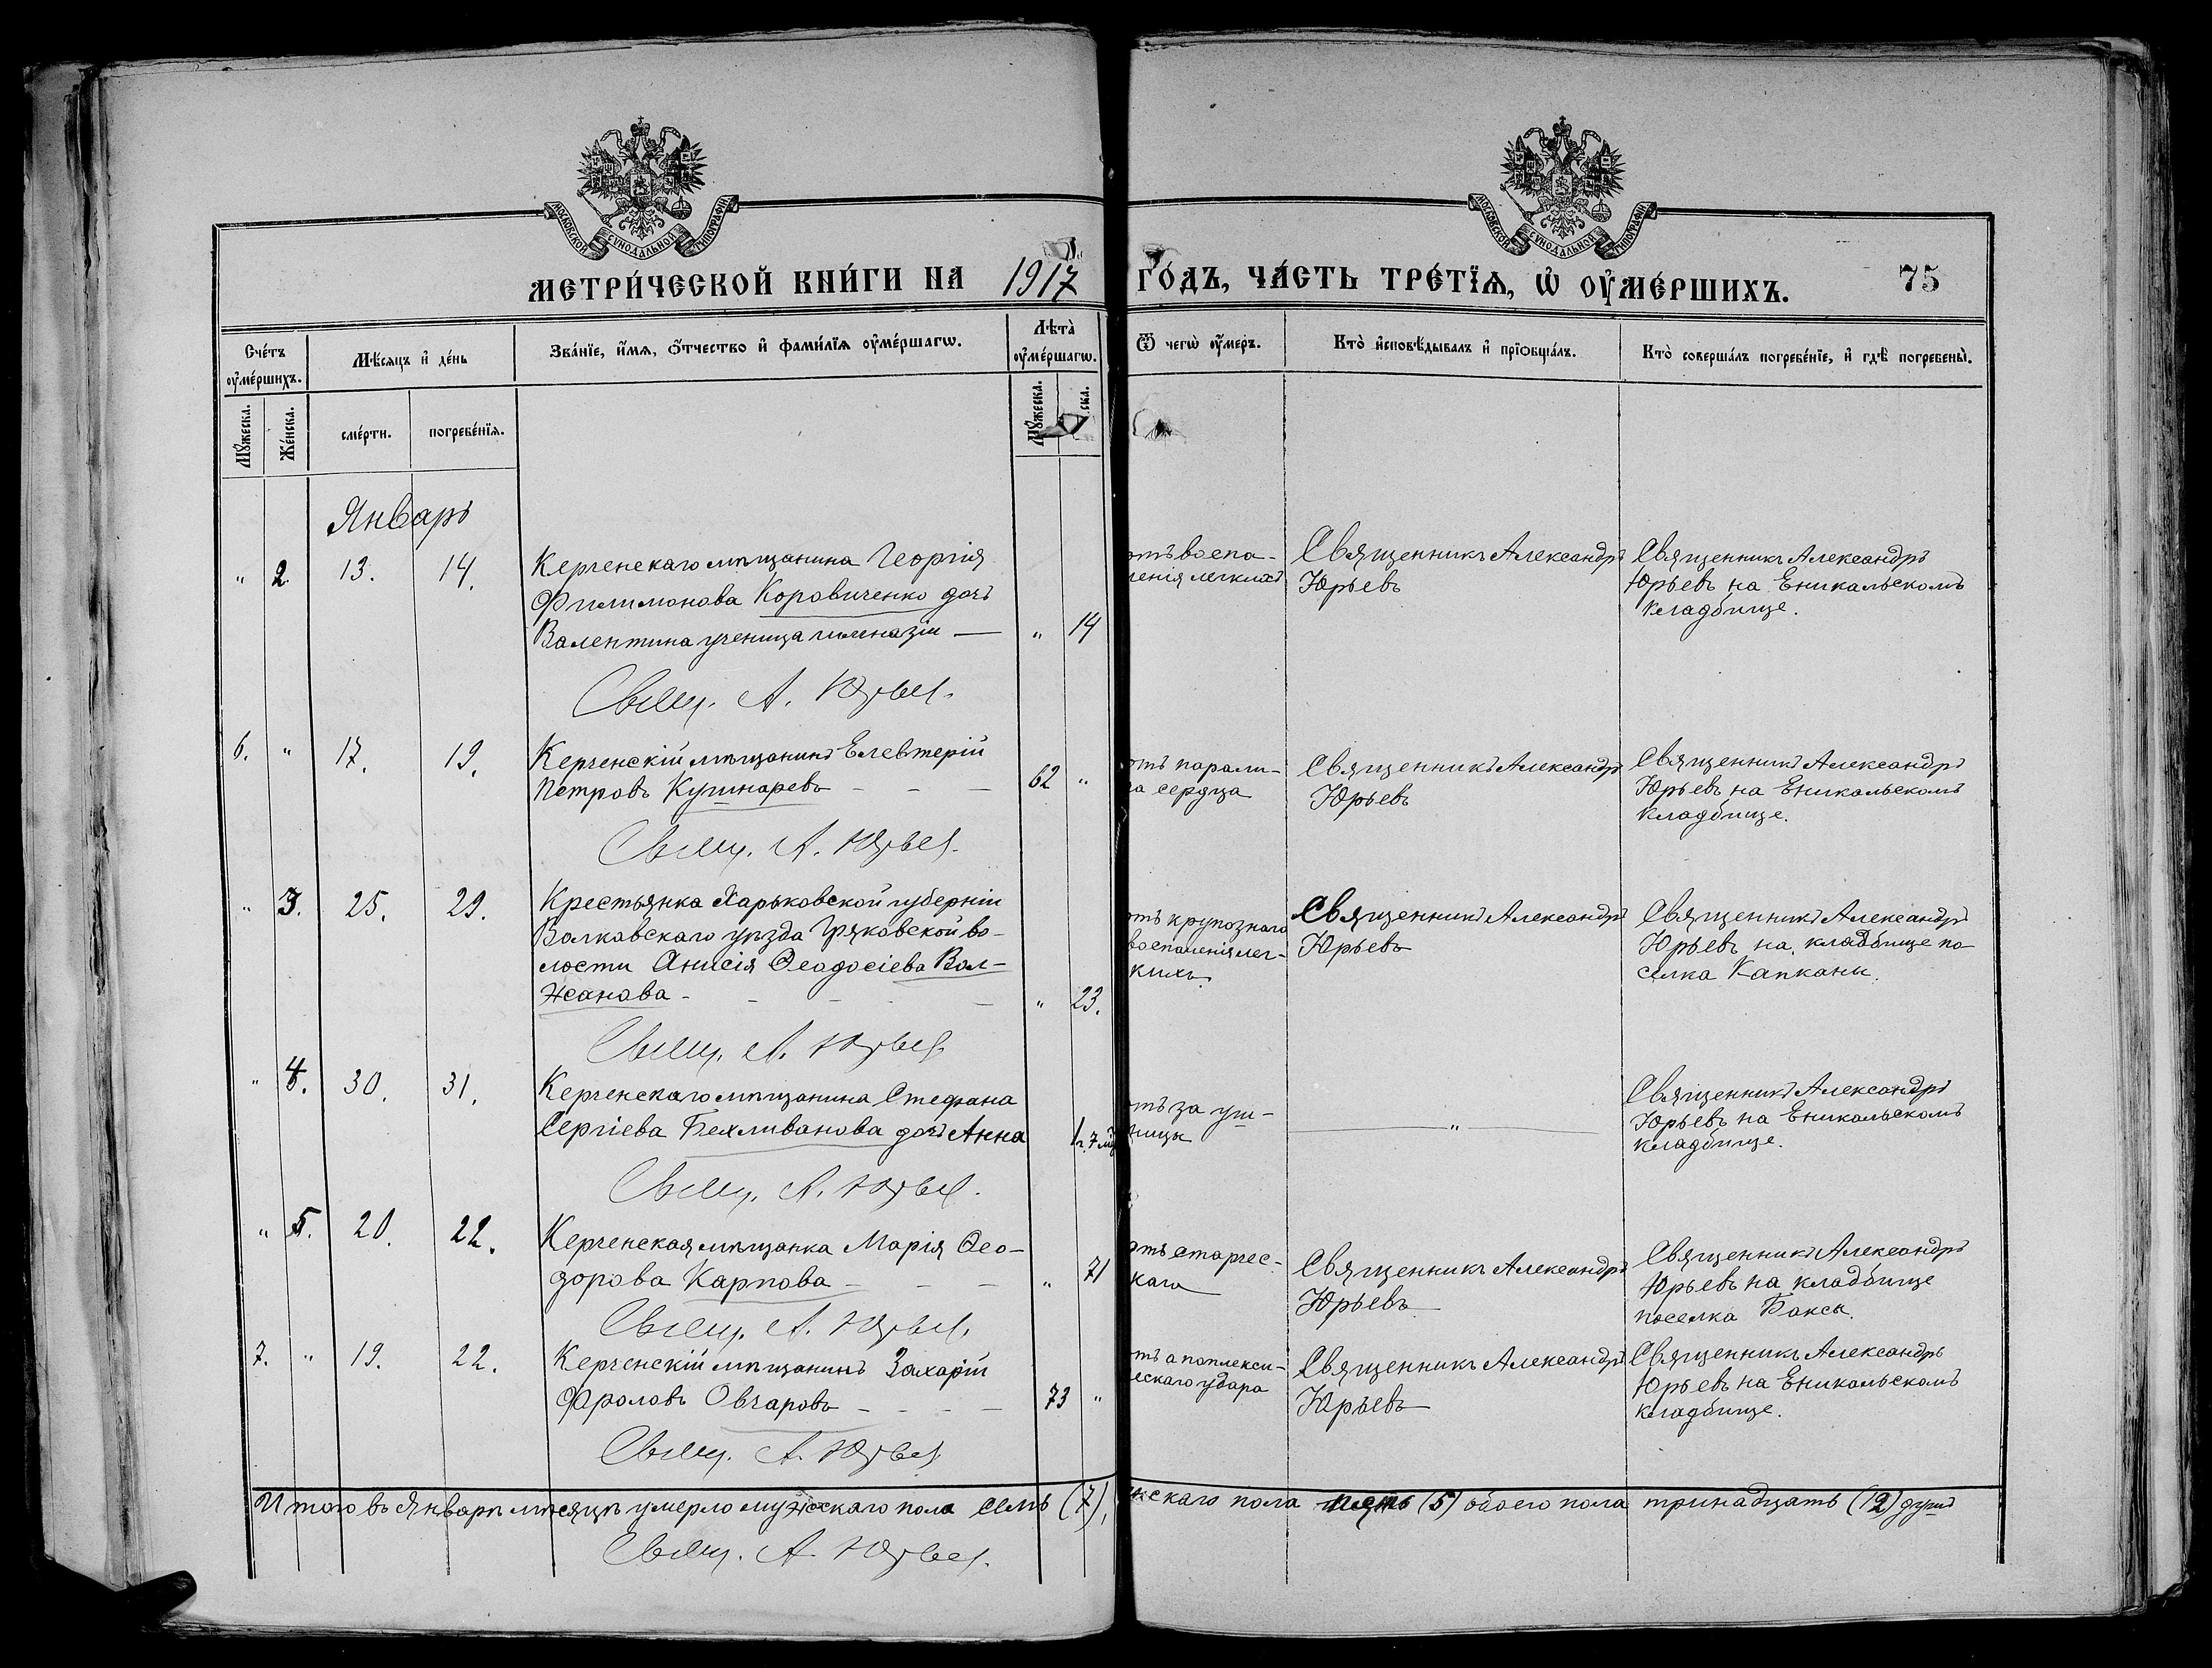 МОСКОВСКОЙ СѴНОДАЛЬНОЙ ТИПОГРАФІИ
МОСКОВСКОЙ СѴНОДАЛЬНОЙ ТИПОГРАФІИ
МЕТРИ́ЧЕСКОЙ КНИ́ГИ НА 1917 ГО́ДЪ, ЧА́СТЬ ТРЕ́ТЇѦ, Ѡ҆ ОУ҆МЕ́РШИХЪ. 75
Сче́тъ оу҆ме́ршихъ.
Мѣ́сѧцъ и҆ де́нь
Зва́нїе, и҆́мѧ, ѻ҆́тчество и҆ фами́лїѧ оу҆ме́ршагѡ.
Лѣта̀ оу҆ме́ршагѡ.
Ѿ чегѡ̀ оу҆́меръ.
Кто̀ и҆сповѣ́дывалъ и҆ прїѻбща́лъ.
Кто̀ соверша́лъ погребе́нїе, и҆ гдѣ̀ погребены̀.
Мꙋ́жеска.
Же́нска.
сме́рти.
погребе́нїѧ.
Мꙋ́жеска.
ска.
Январь
" 2. 13. 14.
Керченскаго мѣщанина Георгія
Филимонова Коровиченко дочь
Валентина ученица гимназіи — " 14
отъ воспа-
ленія легкихъ
Священникъ Александръ
Юрьевъ
Священникъ Александръ
Юрьевъ на Еникальскомъ
кладбище.
Свящ. А. Юрьев.
6. " 17. 19.
Керченскій мѣщанинъ Елевтерій
Петровъ Кушнаревъ - - - 62 "
отъ парали-
ча сердца
Священникъ Александръ
Юрьевъ
Священникъ Александръ
Юрьевъ на Еникальскомъ
кладбище.
Свящ. А. Юрьев.
" 3. 25. 29.
Крестьянка Харьковской губерніи
Валковскаго уѣзда Гряковской во-
лости Анисія Ѳеодосіева Вол-
жанова - - - - - " 23.
отъ крупознаго
воспаленія лег-
кихъ.
Священникъ Александръ
Юрьевъ
Священникъ Александръ
Юрьевъ на кладбище по-
селка Капканы.
Свящ. А. Юрьев
" 4. 30. 31.
Керченскаго мѣщанина Стефана
Сергіева Бехливанова дочь Анна 1 г. 7 мц
отъ за уш-
ницы
"
Священникъ Александръ
Юрьевъ на Еникальскомъ
кладбище.
Свящ. А. Юрьев.
" 5. 20. 22.
Керченская мѣщанка Марія Ѳео-
дорова Карпова - - - " 71
отъ старчес-
каго
Священникъ Александръ
Юрьевъ
Священникъ Александръ
Юрьевъ на кладбище
поселка Баксы.
Свящ. А. Юрьев.
7. " 19. 22.
Керченскій мѣщанинъ Захарій
Фроловъ Овчаровъ - - - - 73 "
отъ апоплекси-
ческаго удара
Священникъ Александръ
Юрьевъ
Священникъ Александръ
Юрьевъ на Еникальскомъ
кладбище.
Свящ. А. Юрьев
Итого въ Январѣ мѣсяцѣ умерло мужескаго пола семь (7), женскаго пола пять (5) обоего пола тринадцать (12) душъ
Свящ. А. Юрьев.